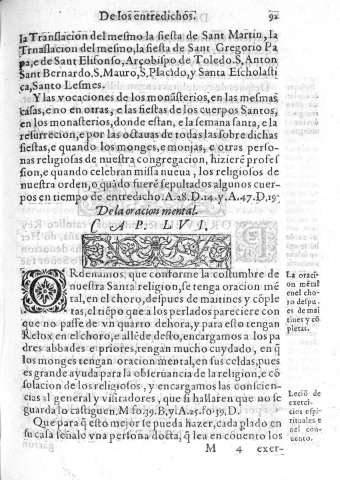 De los entredichos. 92
la Translacion del mesmo la fiesta de Sant Martin, la
Trnaslacion del mesmo, la fiesta de Sant Gregorio Pa
pa, e de Sant Elifonso, Arçobispo de Toledo. S, Anton
Sant Bernardo. S, Mauro, S, Placido, y Santa Escholasti
ca, Santo Lesmes.
Y las vocaciones de los monasterios, en las mesmas
casas, e no en otras, e las fiestas de los cuerpos Santos,
en los monasterios, donde estan, e la semana santa, e la
resurrecion, e por las octauas de todas las sobre dichas
fiestas, e quando los monges, e monjas, e otras perso-
nas religiosas de nuestra congregacion, hizierē profes
sion, e quando celebran missa nueua, los religiosos de
nuestra orden, o quādo fuerē sepultados algunos cuer-
pos en tiempo de entredicho. A. 28. D. 14. y A. 47. D, 19.
De la oracion mental.
CAP. LVI.
ORdenamos, que conforme la costumbre de
nuestra Santa religion, se tenga oracion mē
tal, en el choro, despues de maitines y cōple
tas, el tiēpo que a los perlados pareciere con
que no passe de vn quarto de hora, y para esto tengan
Relox en el choro, e allēde desto, encargamos a los pa
dres abbades e priores, tengan mucho cuydado, en q̄
los monges tengan oracion mental, en sus celdas, pues
es grande ayuda para la obseruancia de la religion, e cō
solacion de los religiosos, y encargamos las conscien-
cias al general y visitadores, que si hallaren que no se
guarda lo castiguen. M fo. 39. B, y. A. 25. fo. 39, D.
Que para q̄ esto mejor se pueda hazer, cada plado en
su casa señale vna persona docta, q̄ lea en cōuento los
M 4 exer-
La oraci
on mētal
en el cho-
ro despu-
es de mai
tines y cō
pletas.
Leciō de
exerci-
cios espi-
rituales e
nel con-
uento.